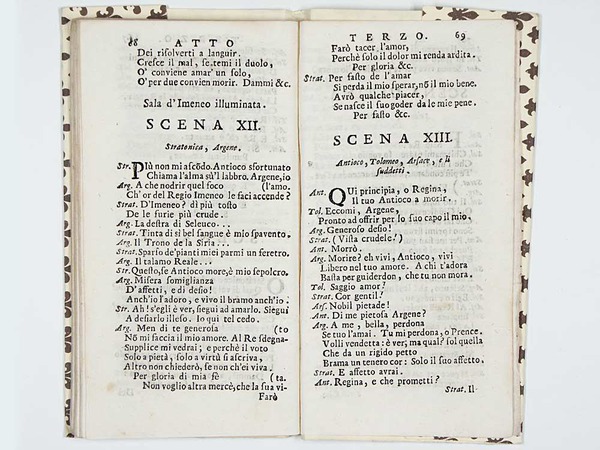 68 ATTO
Dei risolverti a languir.
Cresce il mal, se temi il duolo,
O' conviene amar' un solo,
O' per due convien morir. Dammi &c.
Sala d'Imeneo illuminata.
SCENA XII.
Stratonica, Argene.
Str. PIù non mi ascōdo. Antioco sfortunato
Chiama l'alma sù'l labbro. Argene, io
Arg. A che nodrir quel foco (l'amo.
Ch'or del Regio Imeneo le faci accende?
Strat. D'Imeneo? dì più tosto
De le furie più crude...
Arg. La destra di Seleuco...
Strat. Tinta di sì bel sangue è mio spavento.
Arg. Il Trono de la Siria...
Strat. Sparso de'pianti miei parmi un feretro.
Arg. Il talamo Reale...
Str. Questo, se Antioco more, è mio sepolcro.
Arg. Misera somiglianza
D'affetti, e di desio!
Anch'io l'adoro, e vivo il bramo anch'io.
Str. Ah! s'egli è ver, segui ad amarlo. Siegui
A desiarlo illeso. Io qui tel cedo.
Arg. Men di te generosa (to
Nō mi faccia il mio amore. Al Re sdegna-
Supplice mi vedrai; e perchè il voto
Solo a pietà, solo a virtù si ascriva,
Altro non chiederò, se non ch'ei viva.
Per gloria di mia fè (ta.
Non voglio altra mercè, che la sua vi-
Farò
TERZO. 69
Farò tacer l'amor,
Perchè solo il dolor mi renda ardita.
Per gloria &c.
Strat. Per fasto de l'amar
Si perda il mio sperar, nō il mio bene.
Avrò qualche piacer,
Se nasce il suo goder da le mie pene.
Per fasto &c.
SCENA XIII.
Antioco, Tolomeo, Arsace, e li
suddetti.
Ant. QUi principia, o Regina,
Il tuo Antioco a morir.
Tol. Eccomi, Argene,
Pronto ad offrir per lo suo capo il mio.
Arg. Generoso desio!
Strat. (Vista crudele!)
Ant. Morrò.
Arg. Morire? eh vivi, Antioco, vivi
Libero nel tuo amore. A chi t'adora
Basta per guiderdon, che tu non mora.
Tol. Saggio amor!
Strat. Cor gentil!
Ars. Nobil pietade!
Ant. Di me pietosa Argene?
Arg. A me, bella, perdona
Se tuo l'amai. Tu mi perdona, o Prence.
Volli vendetta: è ver; ma qual? sol quella
Che da un rigido petto
Brama un tenero cor: Solo il suo affetto.
Strat. E affetto avrai.
Ant. Regina, e che prometti?
Strat. Il